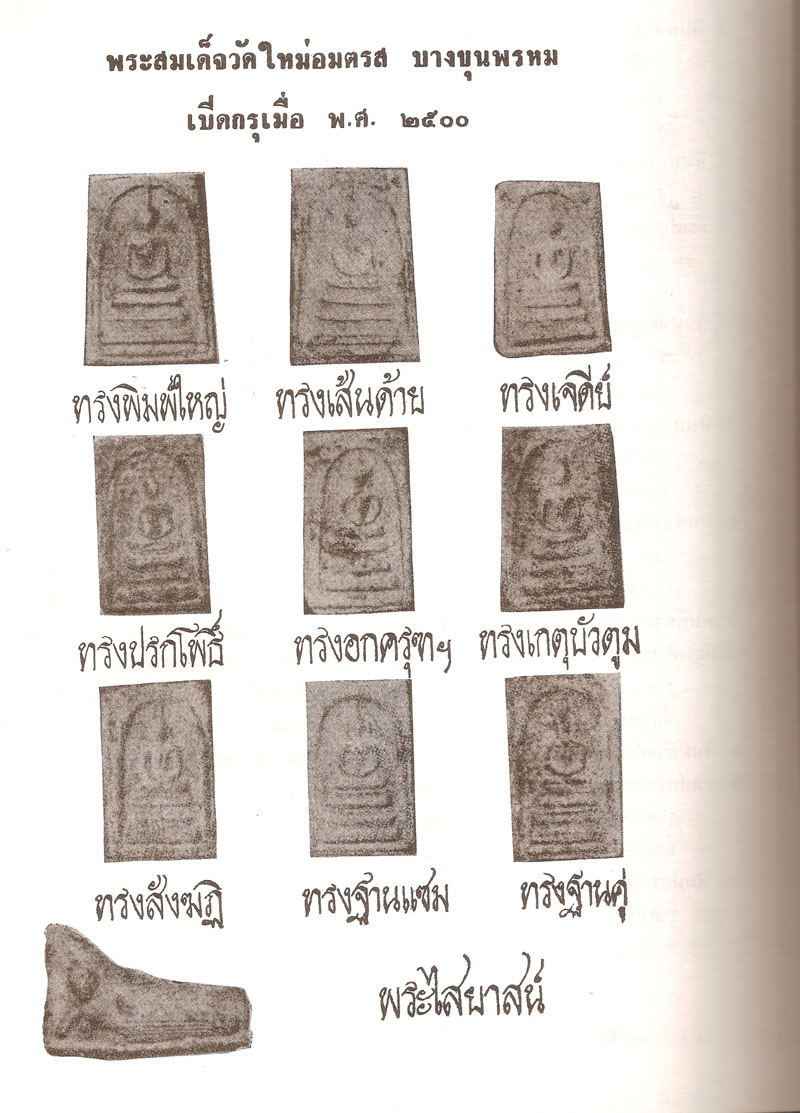 พระสมเด็จวัดใหม่อมตรส บางขุนพรหม
เบีดกรุเมื่อ พ.ศ. ๒๕๐๐
ทรงพิมพ์ใหญ่ ทรงเส้นด้าย ทรงเจดีย์
ทรงปรกโพธิ์ ทรงอกครุฑฯ ทรงเกตุบัวตูม
ทรงสังฆฏิ ทรงฐานแซม ทรงฐานคู่
พระไสยาสน์